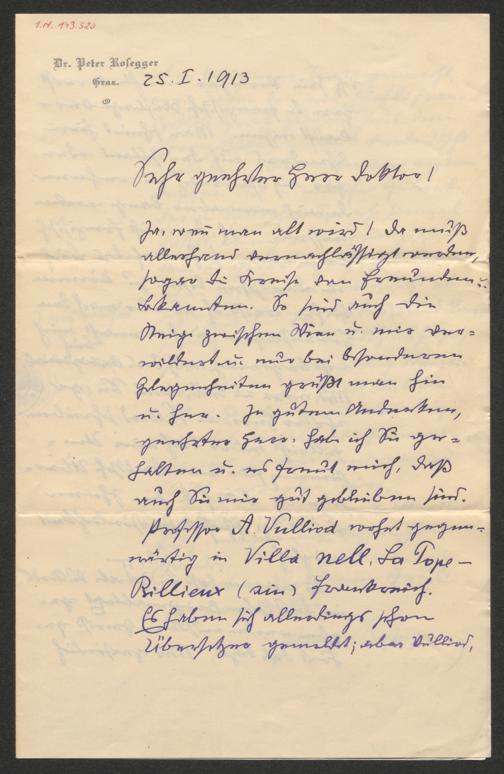 I.N. 143.520
Dr. Peter Rosegger
Graz.
25.I.1913
Sehr geehrter Herr Doktor!
Ja, wen̄ man alt wird! Da muß
allerhand vernachlässigt werden,
sogar die Kreise von Freunden u.
Bekannten. So sind auch die
Steige zwischen Wien u. mir ver=
wildert u. nur bei besonderen
Gelegenheiten grüßt man hin
u. her. In gutem Andenken,
geehrter Herr, habe ich Sie ge=
halten u. es freut mich, daß
auch Sie mir gut geblieben sind.
Professor A. Vulliod wohnt gegen=
wärtig in Villa nell, La Pape-
Rillieux (ain) Frankreich.
Es haben sich allerdings schon
Übersetzer gemeldet; aber Vulliod,